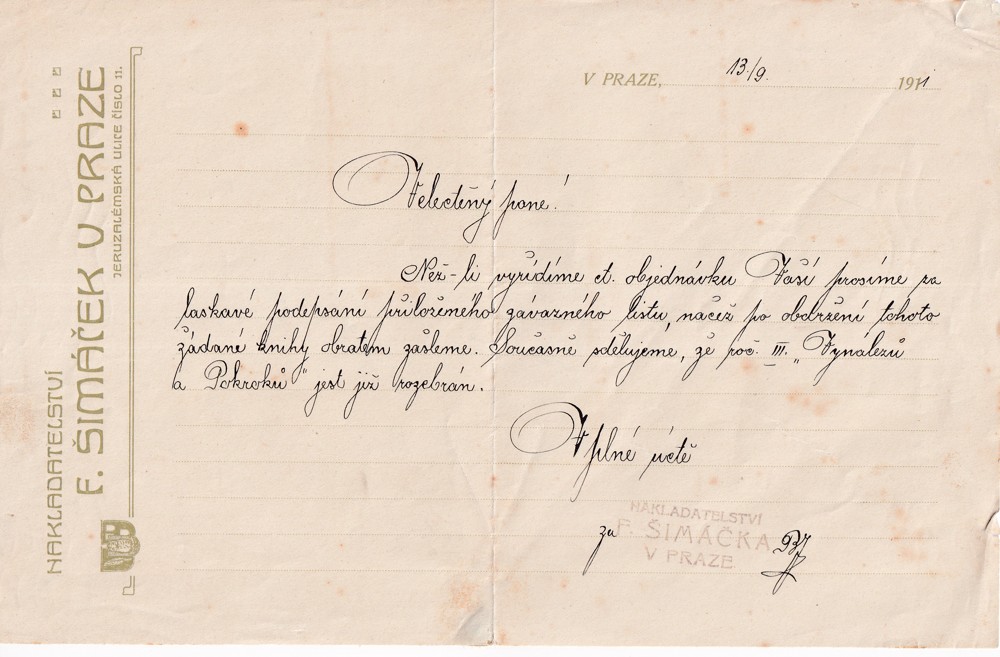 NAKLADATELSTVÍ
F. ŠIMÁČEK V PRAZE
JERUZALÉMSKÁ ULICE ČÍSLO 11.
V PRAZE, 13./9. 1911
Velectěný pane!
Než-li vyřídíme ct. objednávku Vaší prosíme za
laskavé podepsání přiloženého závazného listu, načež po obdržení tohoto
žádané knihy obratem zašleme. Současně sdělujeme, že roč. III. „Vynálezů
a Pokroků" jest již rozebrán.
V plné úctě
za
NAKLADATELSTVÍ
F. ŠIMÁČKA
V PRAZE